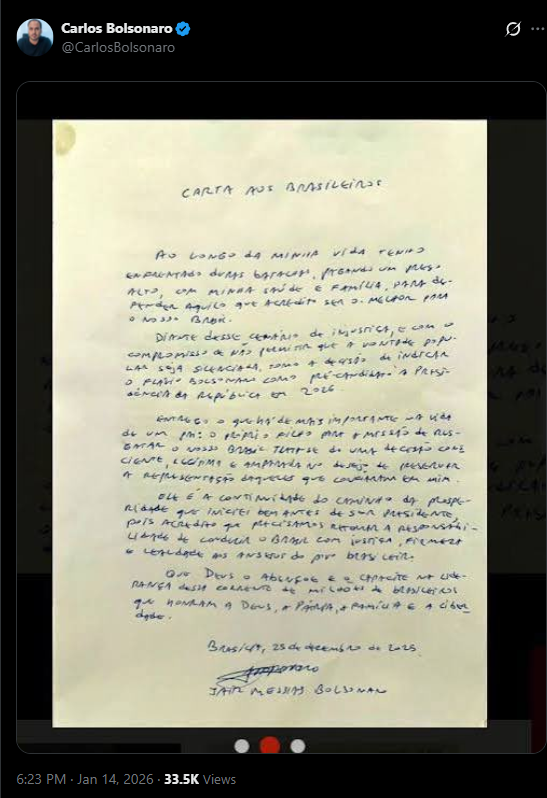 Carlos Bolsonaro
@CarlosBolsonaro
CARTA AOS BRASILEIROS
AO LONGO DA MINHA VIDA TENHO
ENFRENTADO DURAS BATALHAS, PAGANDO UM PREÇO
ALTO, COM MINHA SAÚDE E FAMÍLIA, PARA DE-
FENDER AQUILO QUE ACREDITO SER O MELHOR PARA
O NOSSO BRASIL.
DIANTE DESSE CENÁRIO DE INJUSTIÇA, E COM O
COMPROMISSO DE NÃO PERMITIR QUE A VONTADE POPU-
LAR SEJA SILENCIADA, TOMO A DECISÃO DE INDICAR
O FLÁVIO BOLSONARO COMO PRÉ-CANDIDATO À PRESI-
DÊNCIA DA REPÚBLICA EM 2026.
ENTREGO O QUE HÁ DE MAIS IMPORTANTE NA VIDA
DE UM PAI: O PRÓPRIO FILHO PARA A MISSÃO DE RES-
GATAR O NOSSO BRASIL. TRATA-SE DE UMA DECISÃO CONS
CIENTE, LEGÍTIMA E AMPARADA NO DESEJO DE PRESERVAR
A REPRESENTAÇÃO DAQUELES QUE CONFIARAM EM MIM.
ELE É A CONTINUIDADE DO CAMINHO DA PROSPE-
RIDADE QUE INICIEI BEM ANTES DE SER PRESIDENTE,
POIS ACREDITO QUE PRECISAMOS RETOMAR A RESPONSABI-
LIDADE DE CONDUZIR O BRASIL COM JUSTIÇA, FIRMEZA
E LEALDADE AOS ANSEIOS DO POVO BRASILEIRO.
QUE DEUS O ABENÇOE E O CAPACITE NA LIDE-
RANÇA DESSA CORRENTE DE MILHÕES DE BRASILEIROS
QUE HONRAM A DEUS, A PÁTRIA, A FAMÍLIA E A LIBER
DADE.
BRASÍLIA, 25 de dezembro de 2025.
JAIR MESSIAS BOLSONARO
6:23 PM · Jan 14, 2026 · 33.5K Views